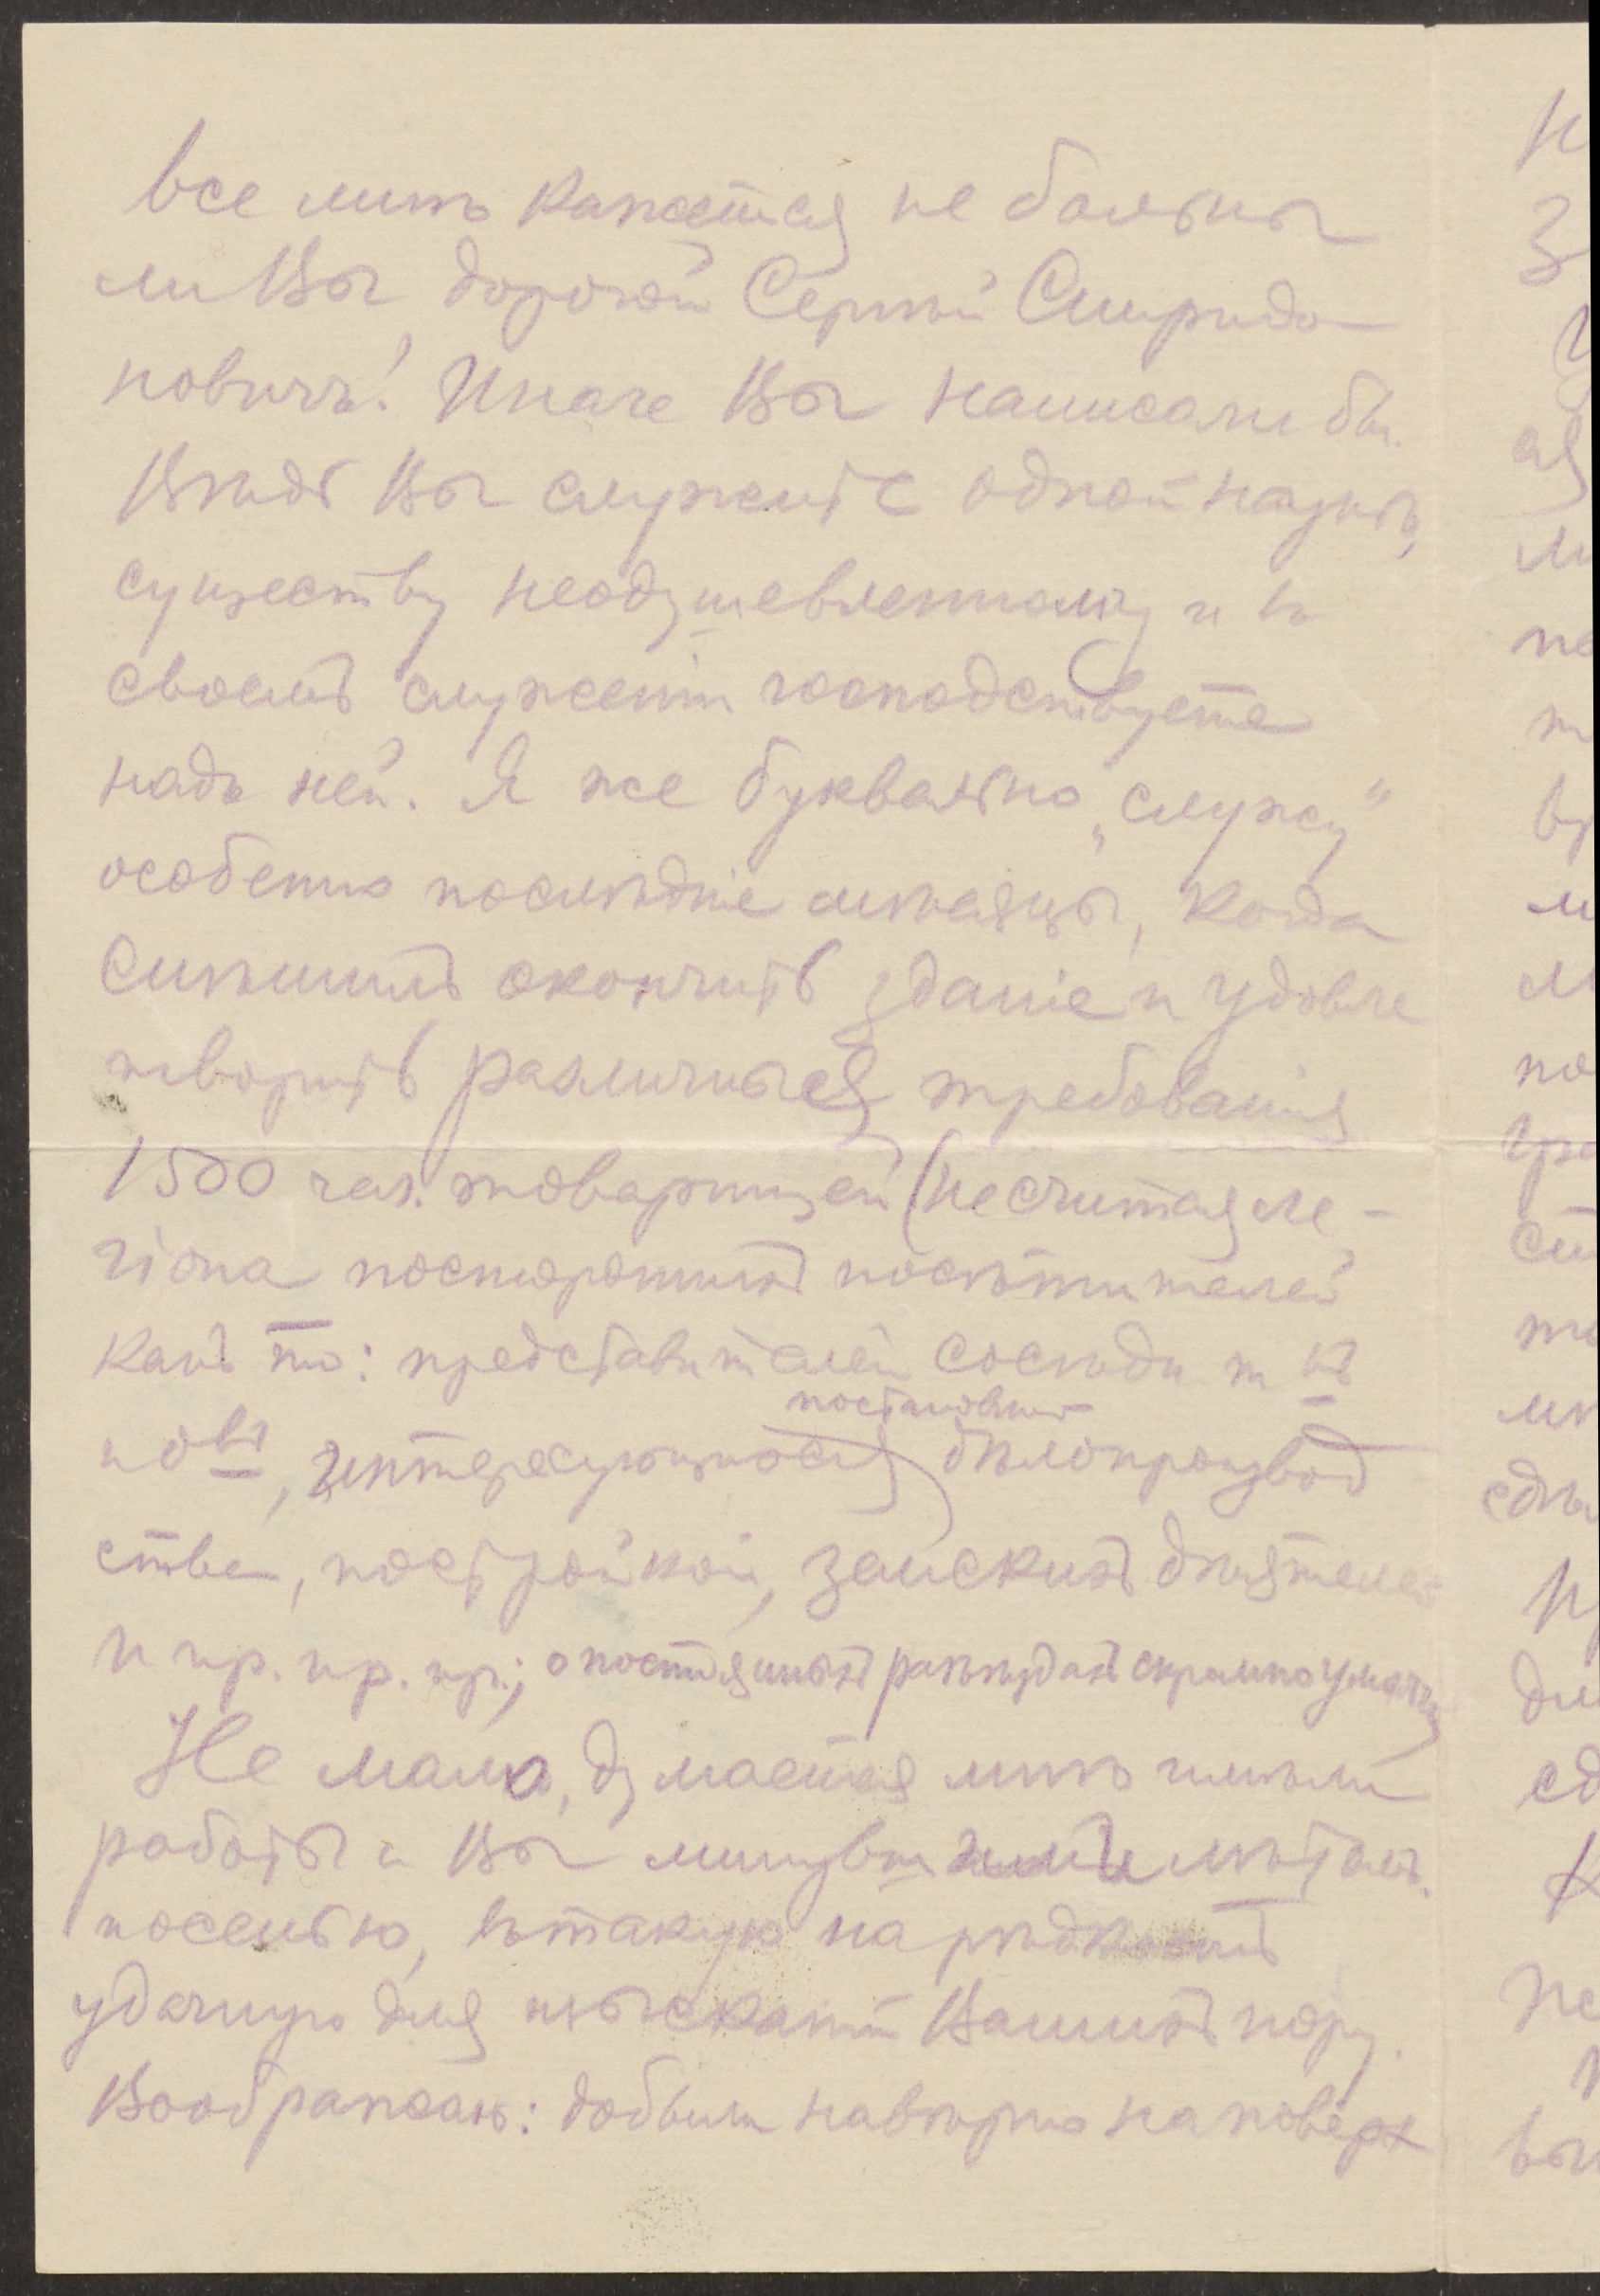 все мнѣ кажется не больны
ли Вы, дорогой Сергѣй Спиридо
новичъ! Иначе Вы написали бы.
Вѣдь Вы служите одной наукѣ,
существу неодушевленному и въ
своемъ служеніи господствуете
надъ ней. Я же буквально „служу"
особенно послѣдніе мѣсяцы, когда
спѣшимъ окончить зданіе и удовле
творить различныя требованія
1500 чел. товарищей (не считая ле-
гіона постороннихъ посѣтителей
какъ то: представителей сосѣдн. т
новъ, интересующихся постановкой дѣлопроизвод
ства, постройкой, земскихъ дѣятелей
и пр. пр. пр.; о постоянныхъ разъѣздахъ скромно умолчу
Не мало, думается мнѣ имѣли
работы и Вы минувшими лѣтомъ
и осенью, въ такую на рѣдкость
удачную для изысканій Вашихъ пору.
Воображаю: добыли навѣрно на поверх